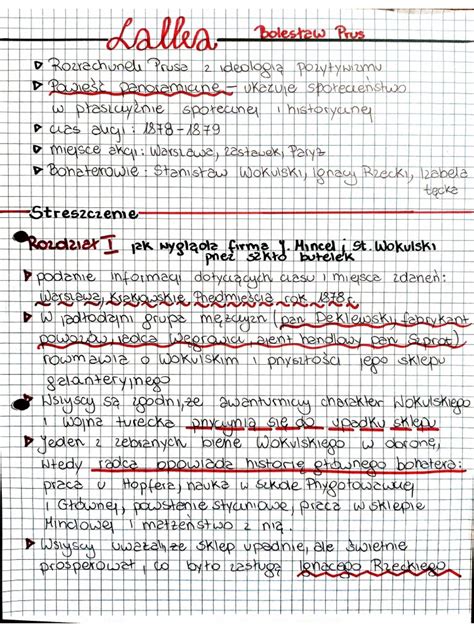 Lalka Bolesław Prus
▷ Rozrachunek Prusa z ideologią pozytywizmu
▷ Powieść panoramiczna - ukazuje społeczeństwo
w płaszczyźnie społecznej i historycznej
▷ czas akcji: 1878-1879
▷ miejsce akcji: Warszawa, Zasławek, Paryż
▷ Bohaterowie: Stanisław Wokulski, Ignacy Rzecki, Izabela
Łęcka
Streszczenie
Rozdział I jak wygląda firma J. Mincel i St. Wokulski
przez szkło butelek
▷ podanie informacji dotyczących czasu i miejsca zdarzeń:
Warszawa, Krakowskie Przedmieście, rok 1878r.
▷ W jadłodajni grupa mężczyzn (pan Deklewski, fabrykant
powozów, radca Węgrowicz, ajent handlowy pan Szprot)
rozmawia o Wokulskim i przyszłości jego sklepu
galanteryjnego
▷ Wszyscy są zgodni, że awanturniczy charakter Wokulskiego
i wojna turecka przyczynią się do upadku sklepu
▷ Jeden z zebranych bierze Wokulskiego w obronę,
wtedy radca opowiada historię głównego bohatera:
praca u Hopfera, nauka w Szkole Przygotowawczej
i Głównej, powstanie styczniowe, praca w sklepie
Minclowej i małżeństwo z nią.
▷ Wszyscy uważali, że sklep upadnie, ale świetnie
prosperował, co było zasługą Ignacego Rzeckiego